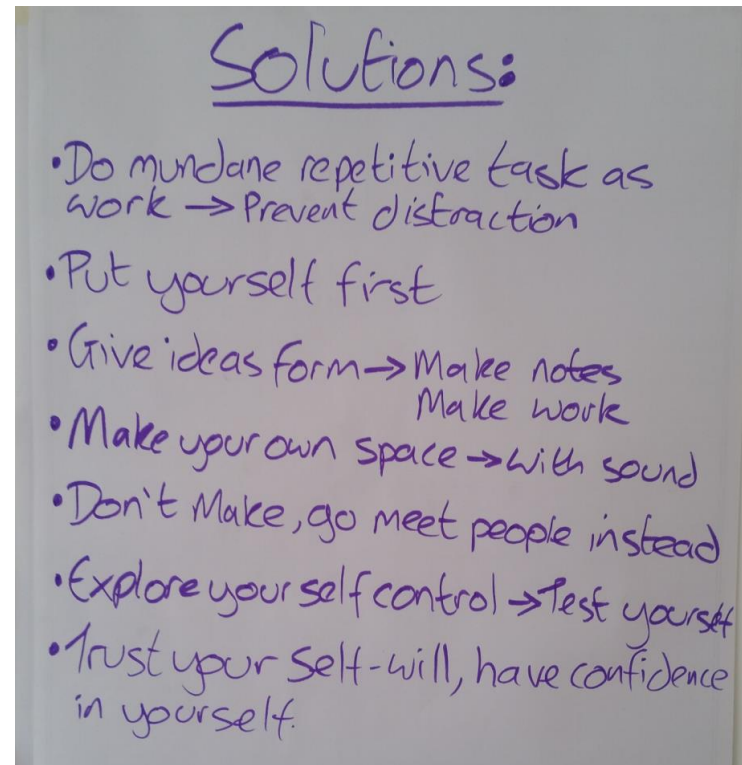 Solutions:
•Do mundane repetitive task as
work → Prevent distraction
•Put yourself first
•Give ideas form → Make notes
Make work
•Make your own space → with sound
•Don't Make, go meet people instead
•Explore your self control → Test yourself
•Trust your Self-will, have confidence
in yourself.